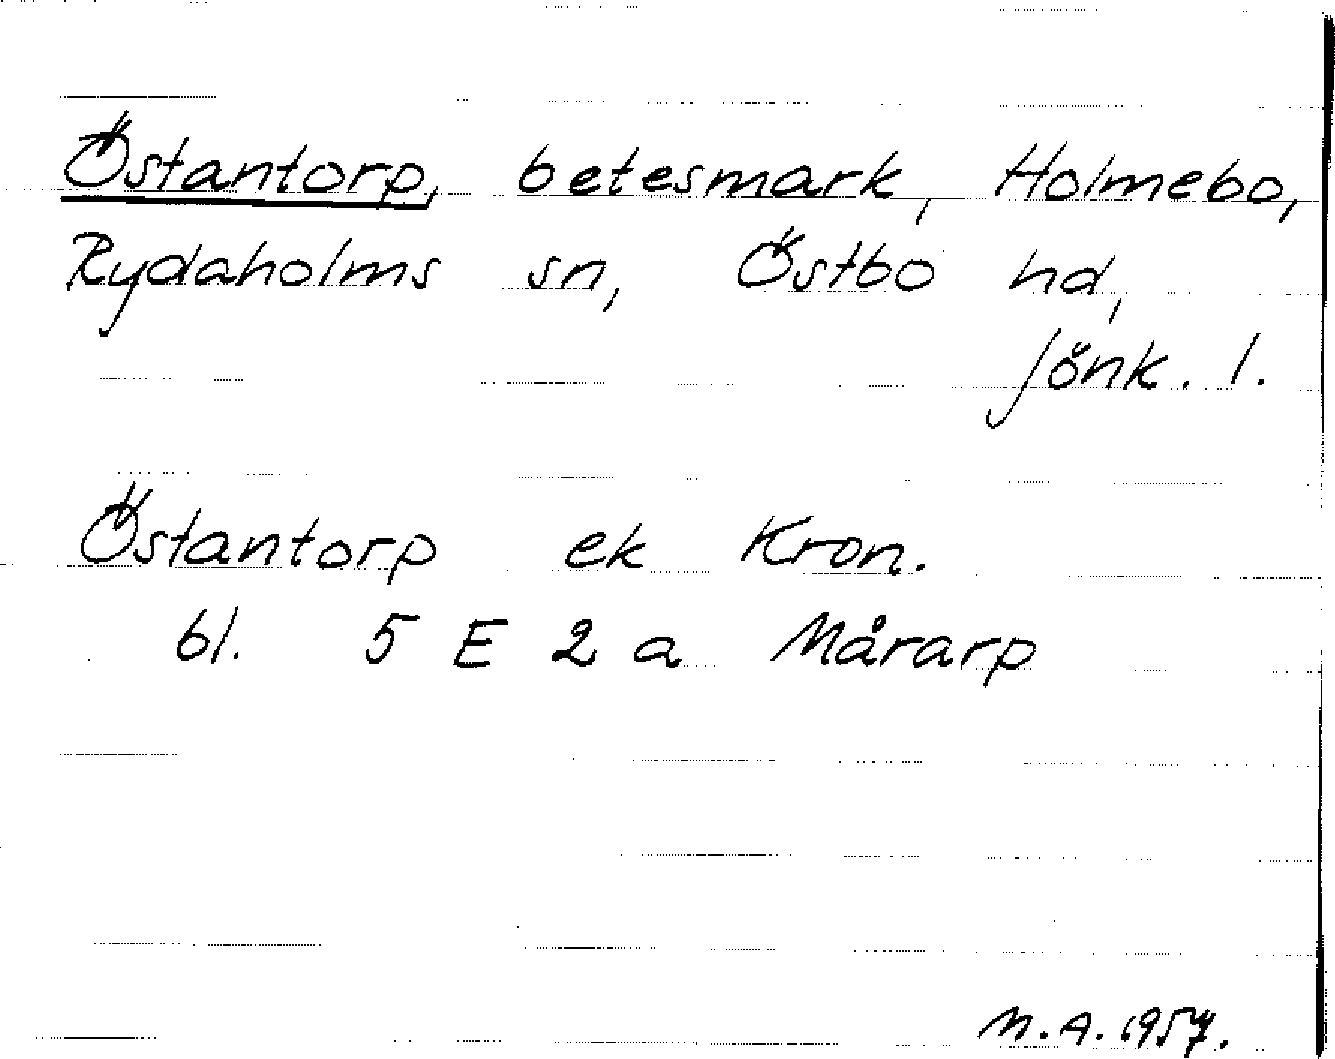 Östantorp, betesmark, Holmebo,
Rydaholms sn, Östbo hd,
Jönk. l.
Östantorp ek Kron.
bl. 5 E 2 a Mårarp
M.A. 1957.